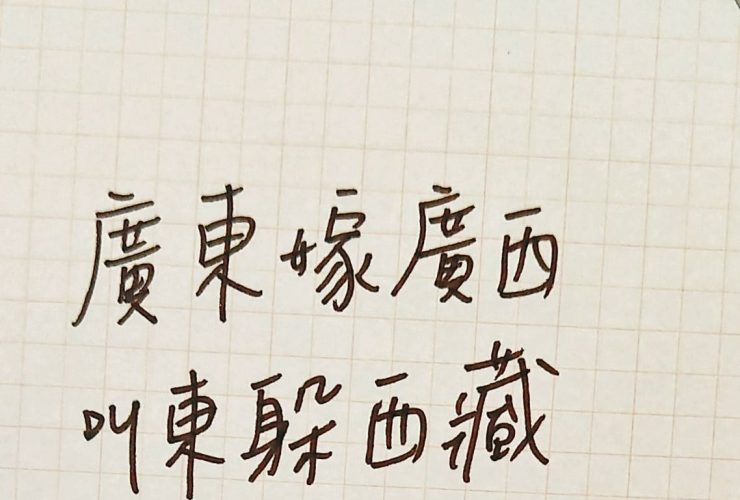 廣東嫁廣西
叫東躲西藏